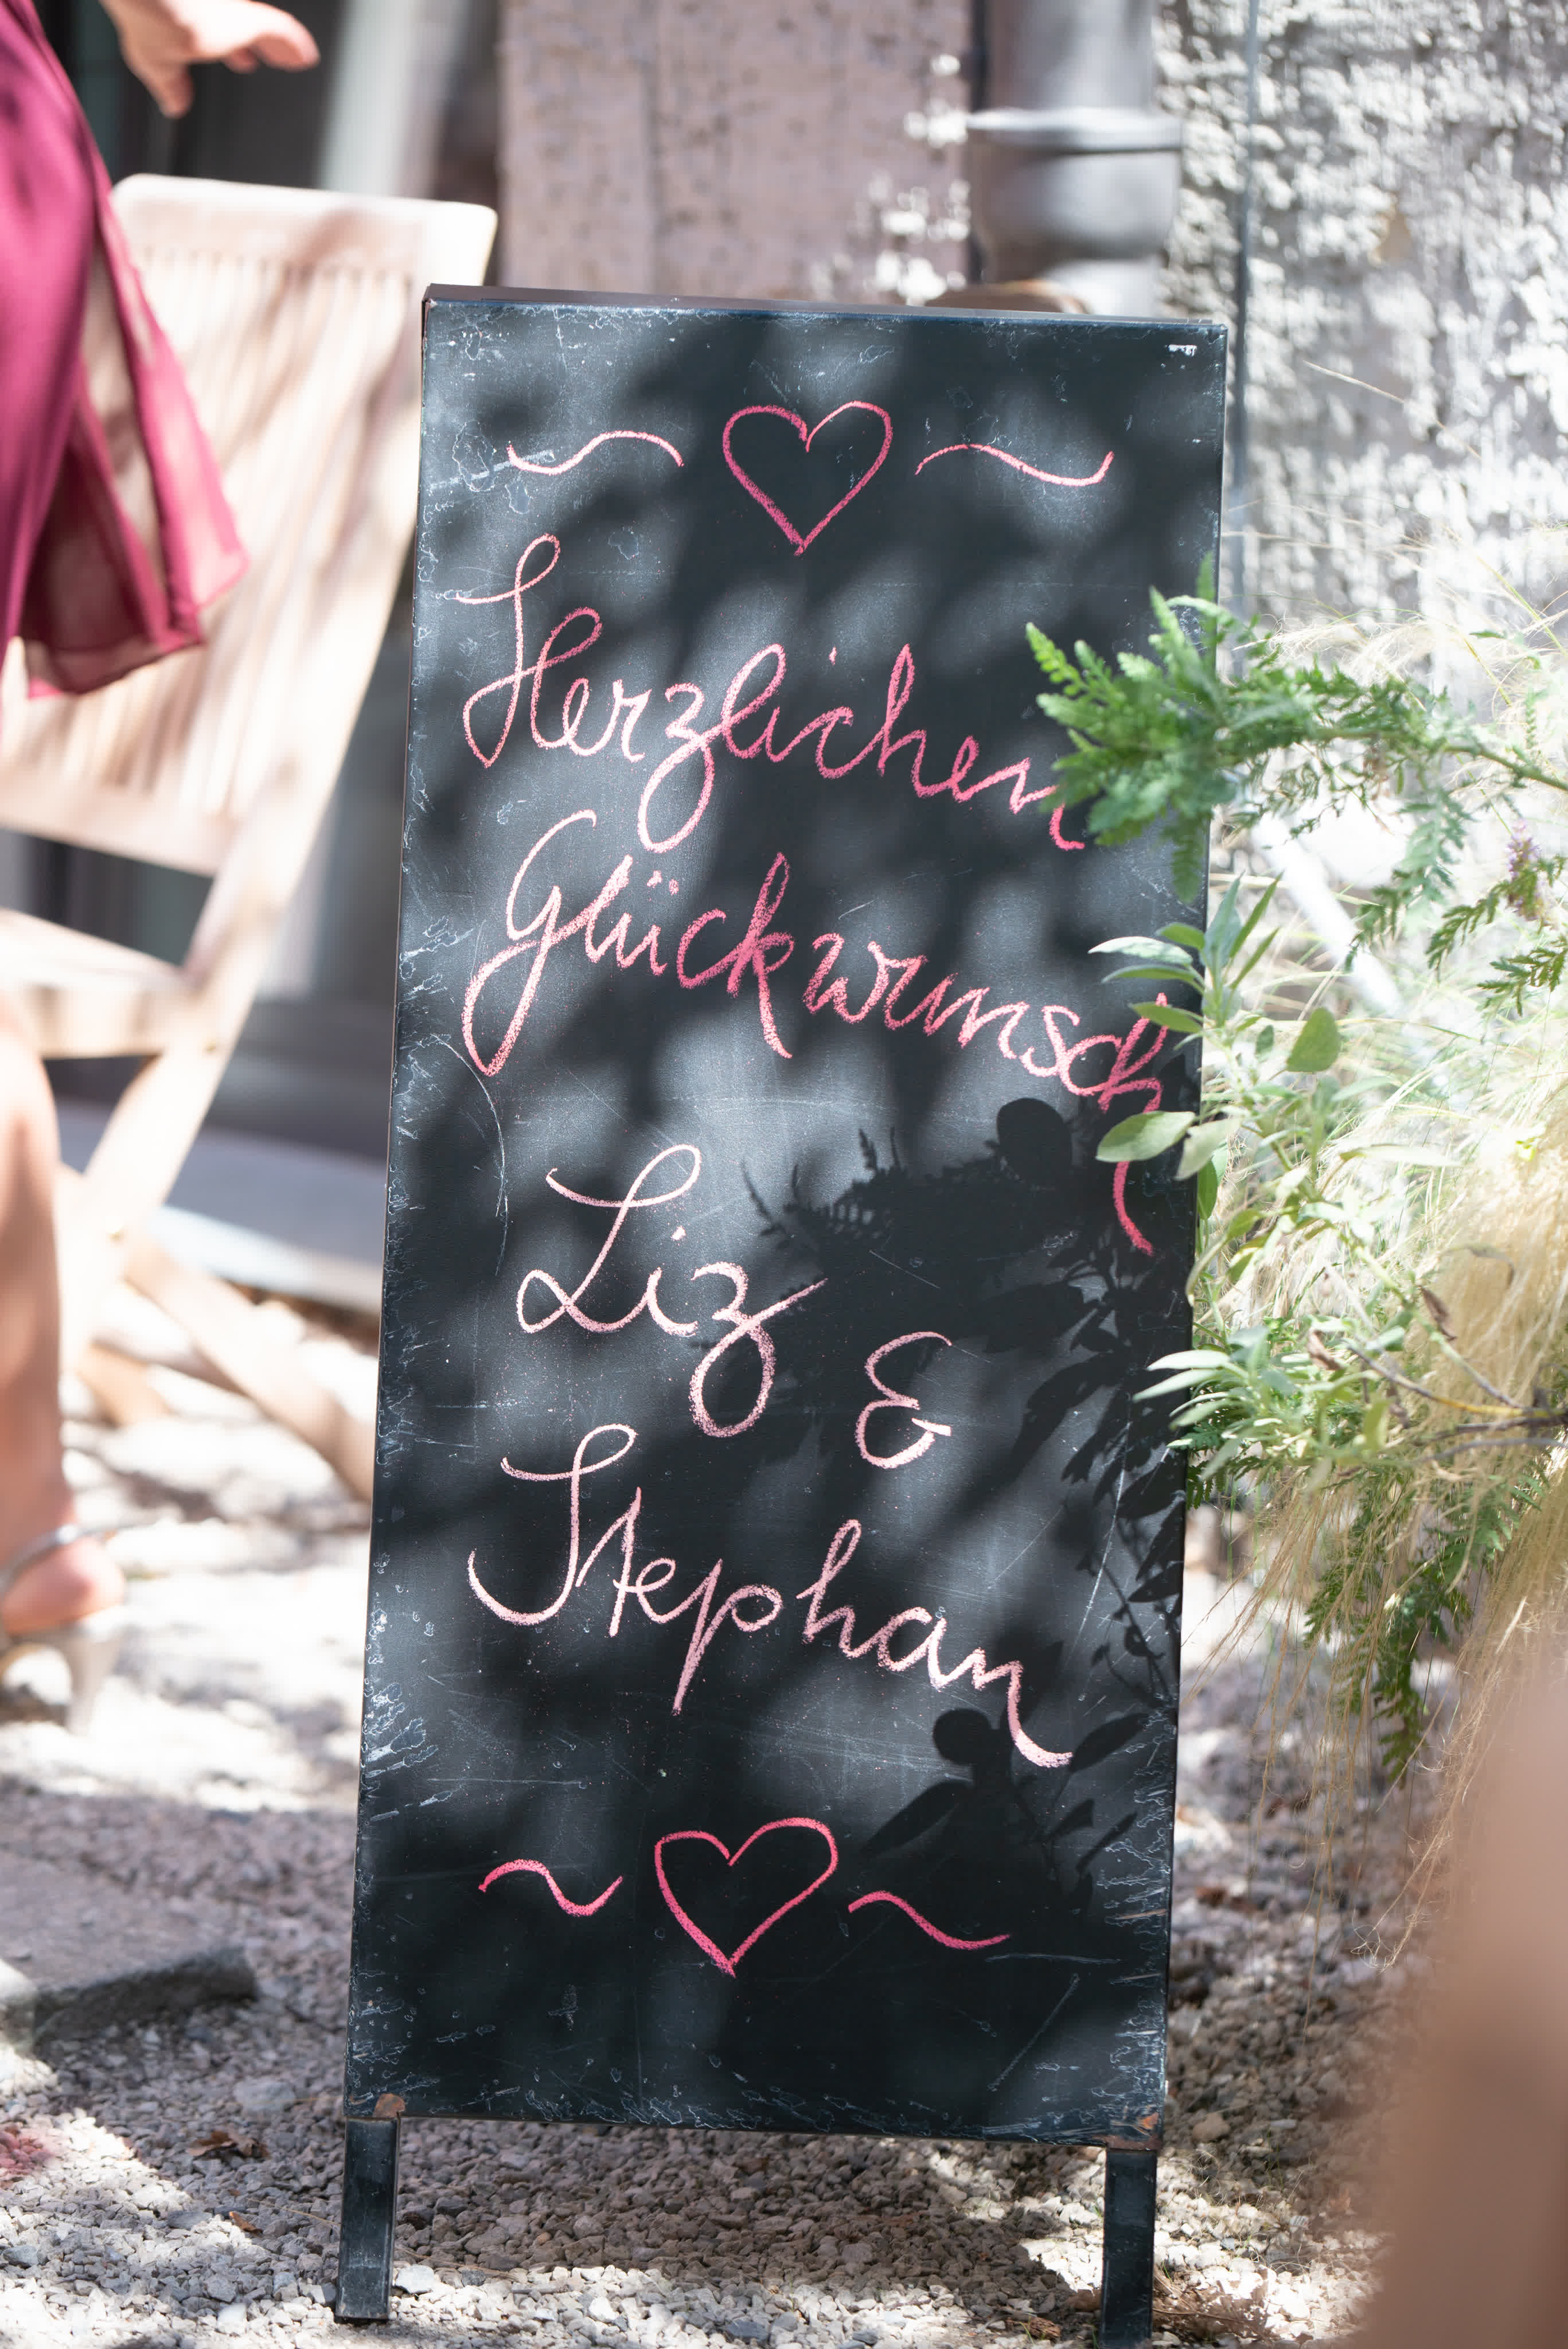 Herzlichen
Glückwunsch
Liz
&
Stephan